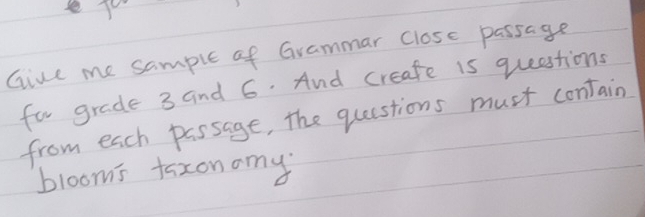 Give me sample of Grammar close passage
for grade 3 and 6. And create 15 questions
from each passage, the questions must contain
bloom's taxonomy.